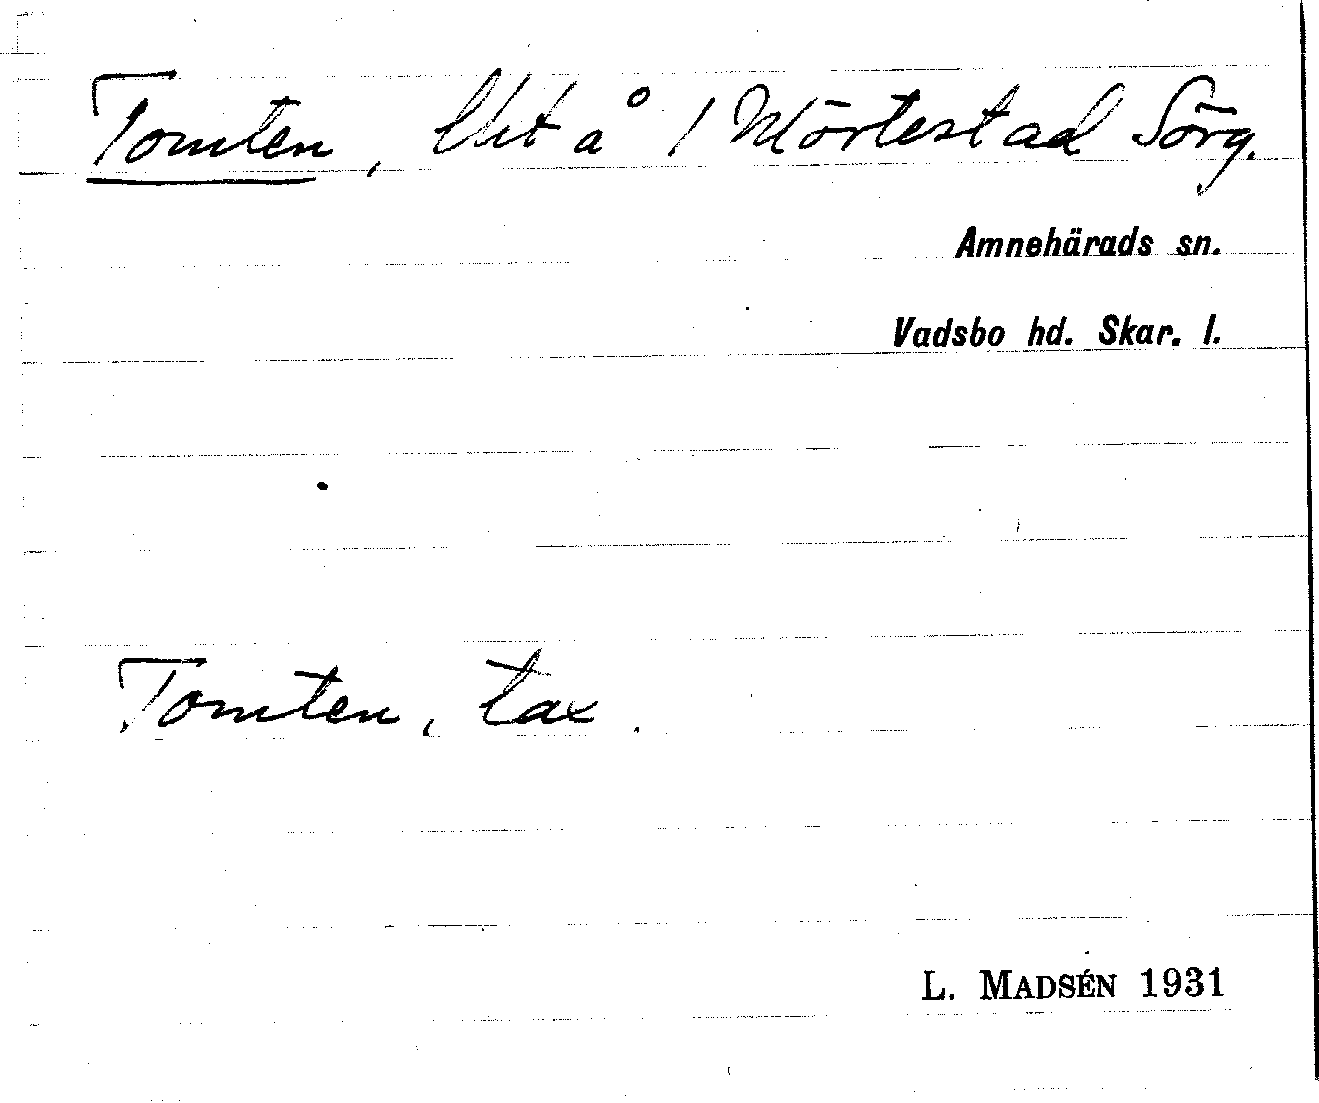 Tomten, lht å 1 Mörtestad Sörg.
Amnehärads sn.
Vadsbo hd. Skar. l.
Tomten, tax.
L. MADSÉN 1931